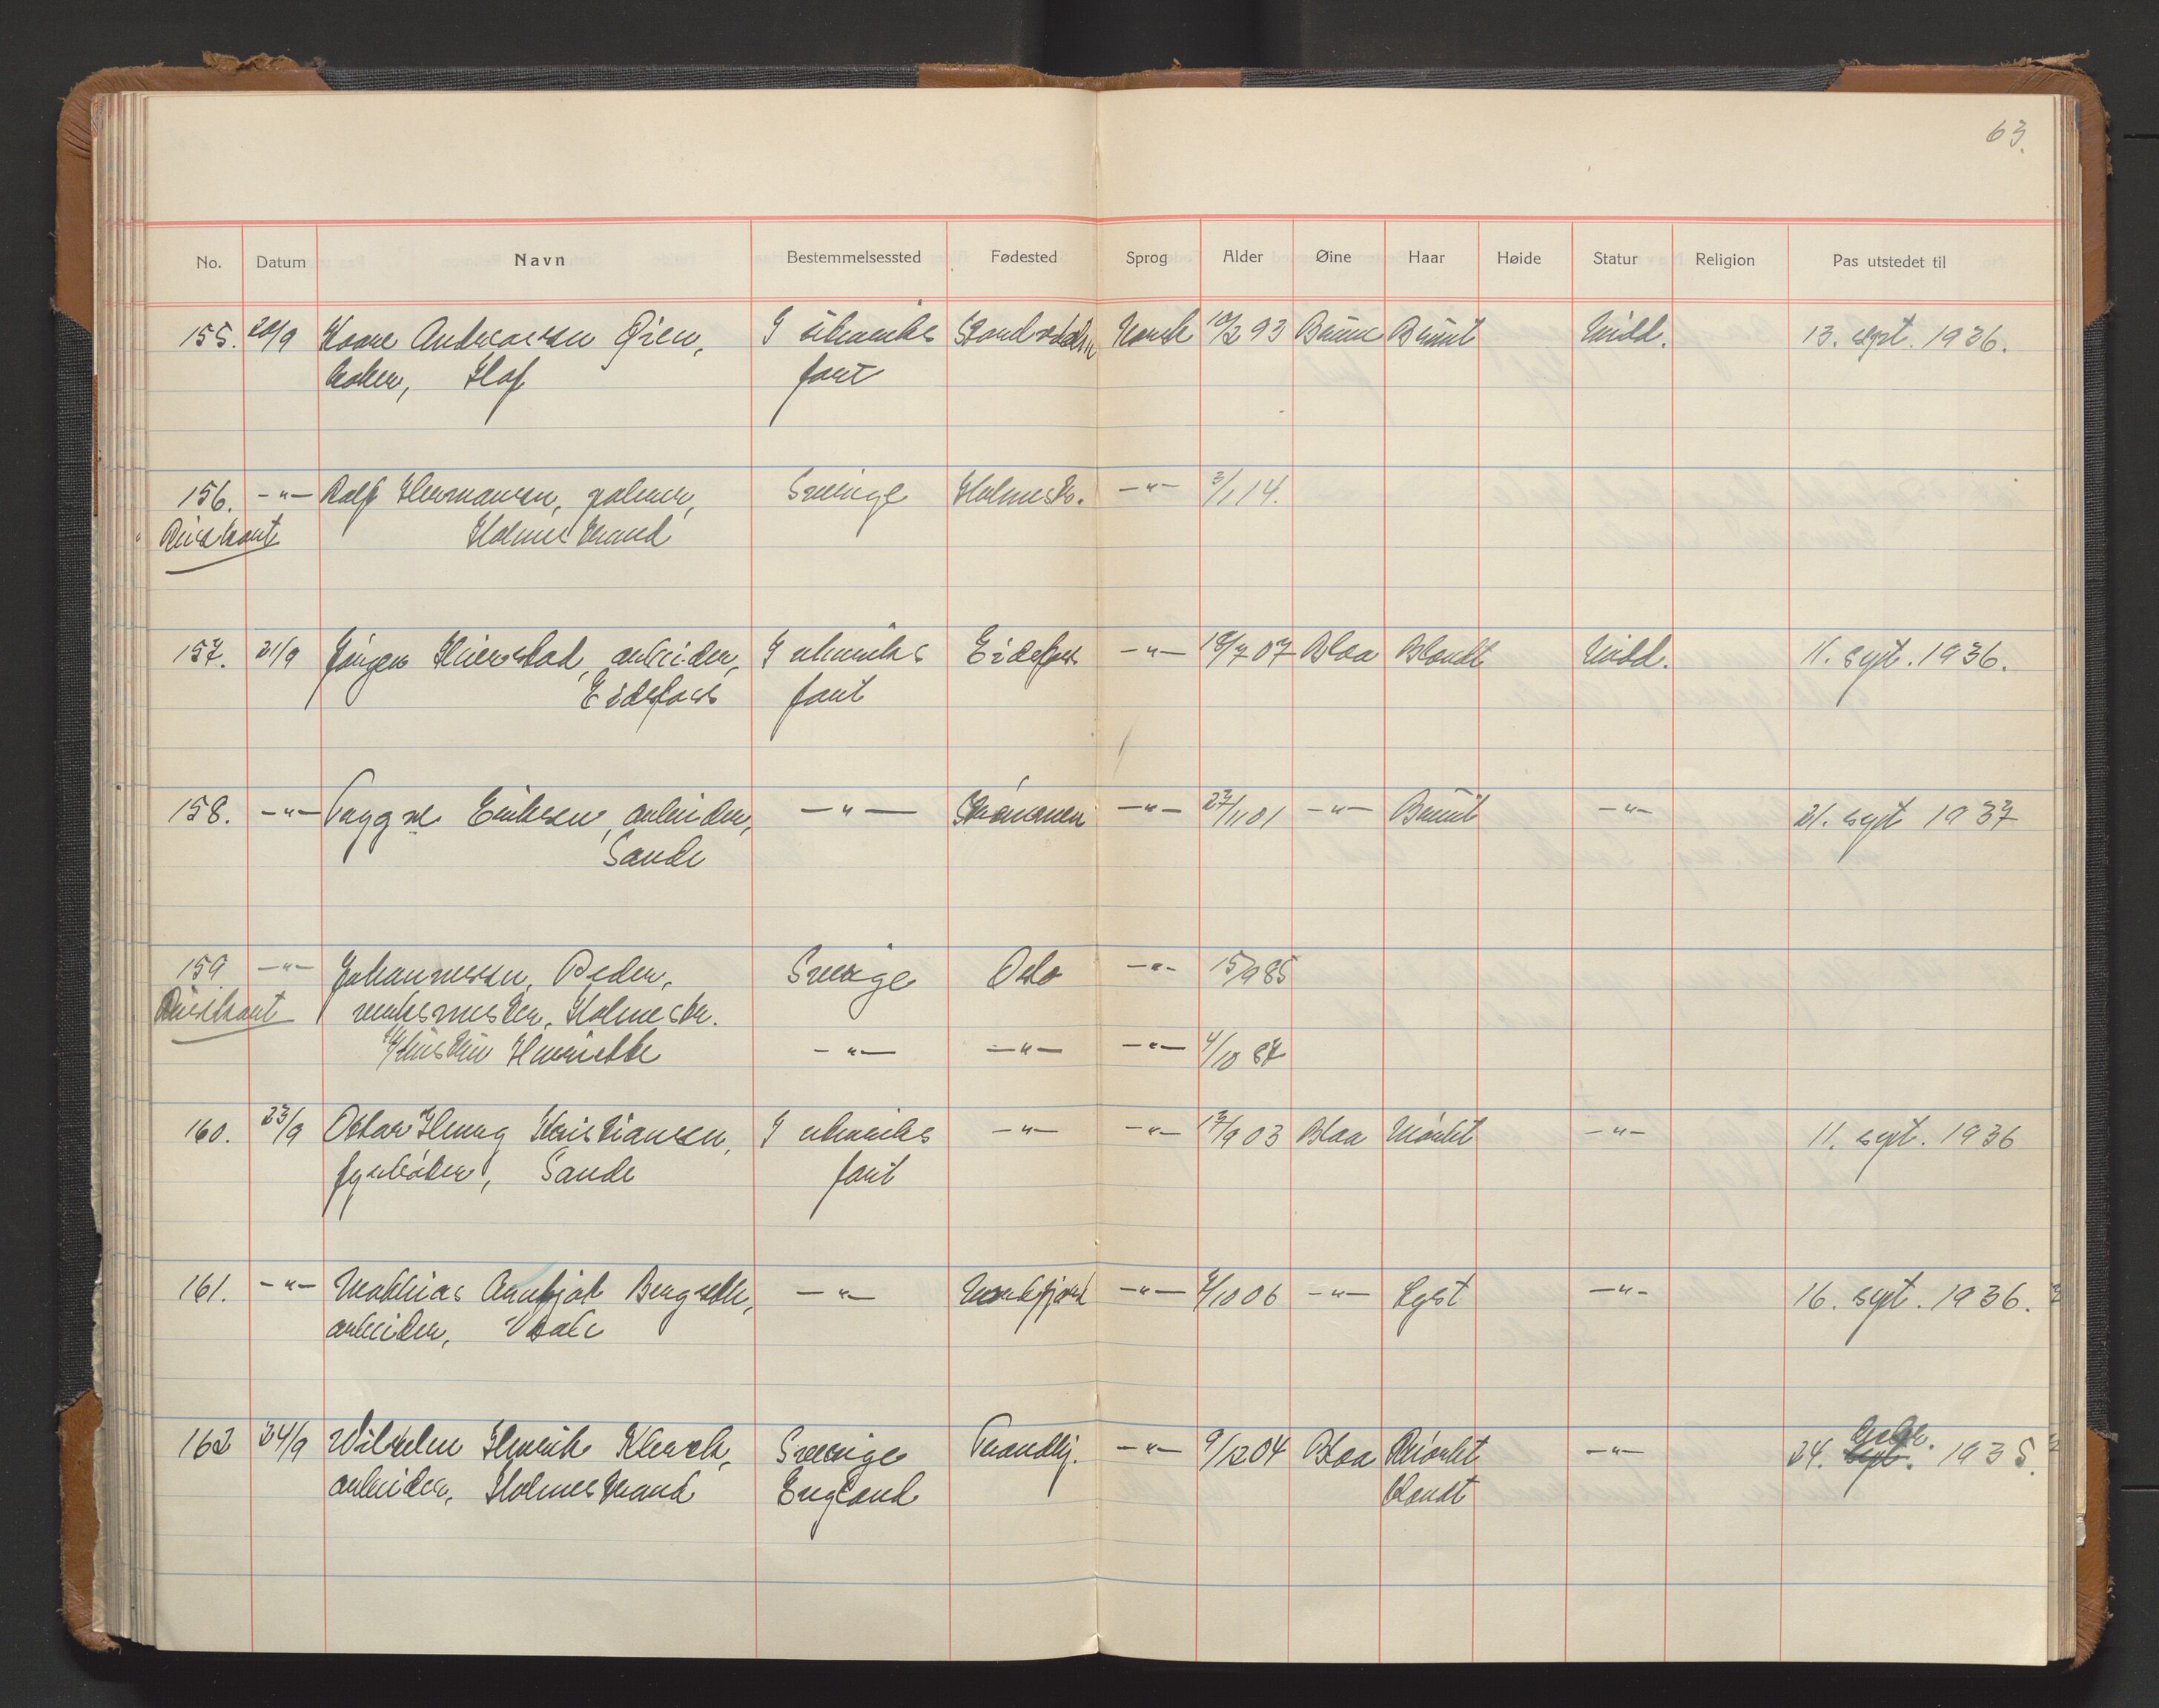 63.
No. Datum Navn Bestemmelsessted Fødested Sprog Alder Øine Haar Høide Statur Religion Pas utstedet til
155. 20/9 Kaare Andreassen Øien, I utenriks Norsk 10/2 93 Brune Brunt Midd. 13. sept. 1936.
baker, Hof fart
156. -"- Rolf Hermansen, Sverige Holmestr. -"- 3/1 14.
Reisekort Holmestrand
157. 21/9 Jørgen arbeider, I utenriks Eidsfoss -"- 18/7 07 Blaa Blondt Midd. 11. sept. 1936.
Eidsfoss fart
158. -"- Tryggve Eriksen, arbeider, -"- Strømmen -"- 27/11 01 -"- Brunt -"- 21. sept 1937
Sande
159 -"- Johannessen, Peder, Sverige Oslo -"- 15/9 85
Reisekort verksmester, Holmestr.
Kristin Henriette -"- -"- -"- 4/10 87
160. 23/9 Oskar Henry Kristiansen, I utenriks -"- -"- 17/9 03 Blaa Mørkt -"- 11. sept. 1936
fyrbøter, Sande fart
161. -"- Mathias Bergseth, -"- -"- 4/10 06 -"- Lyst -"- 16. sept. 1936.
arbeider,
162 24/9 Wilhelm Henrik Sverige Trondhj. -"- 9/12 04 Blaa Mørkt -"- 24. sept. 1935.
arbeider, Holmestrand England blondt